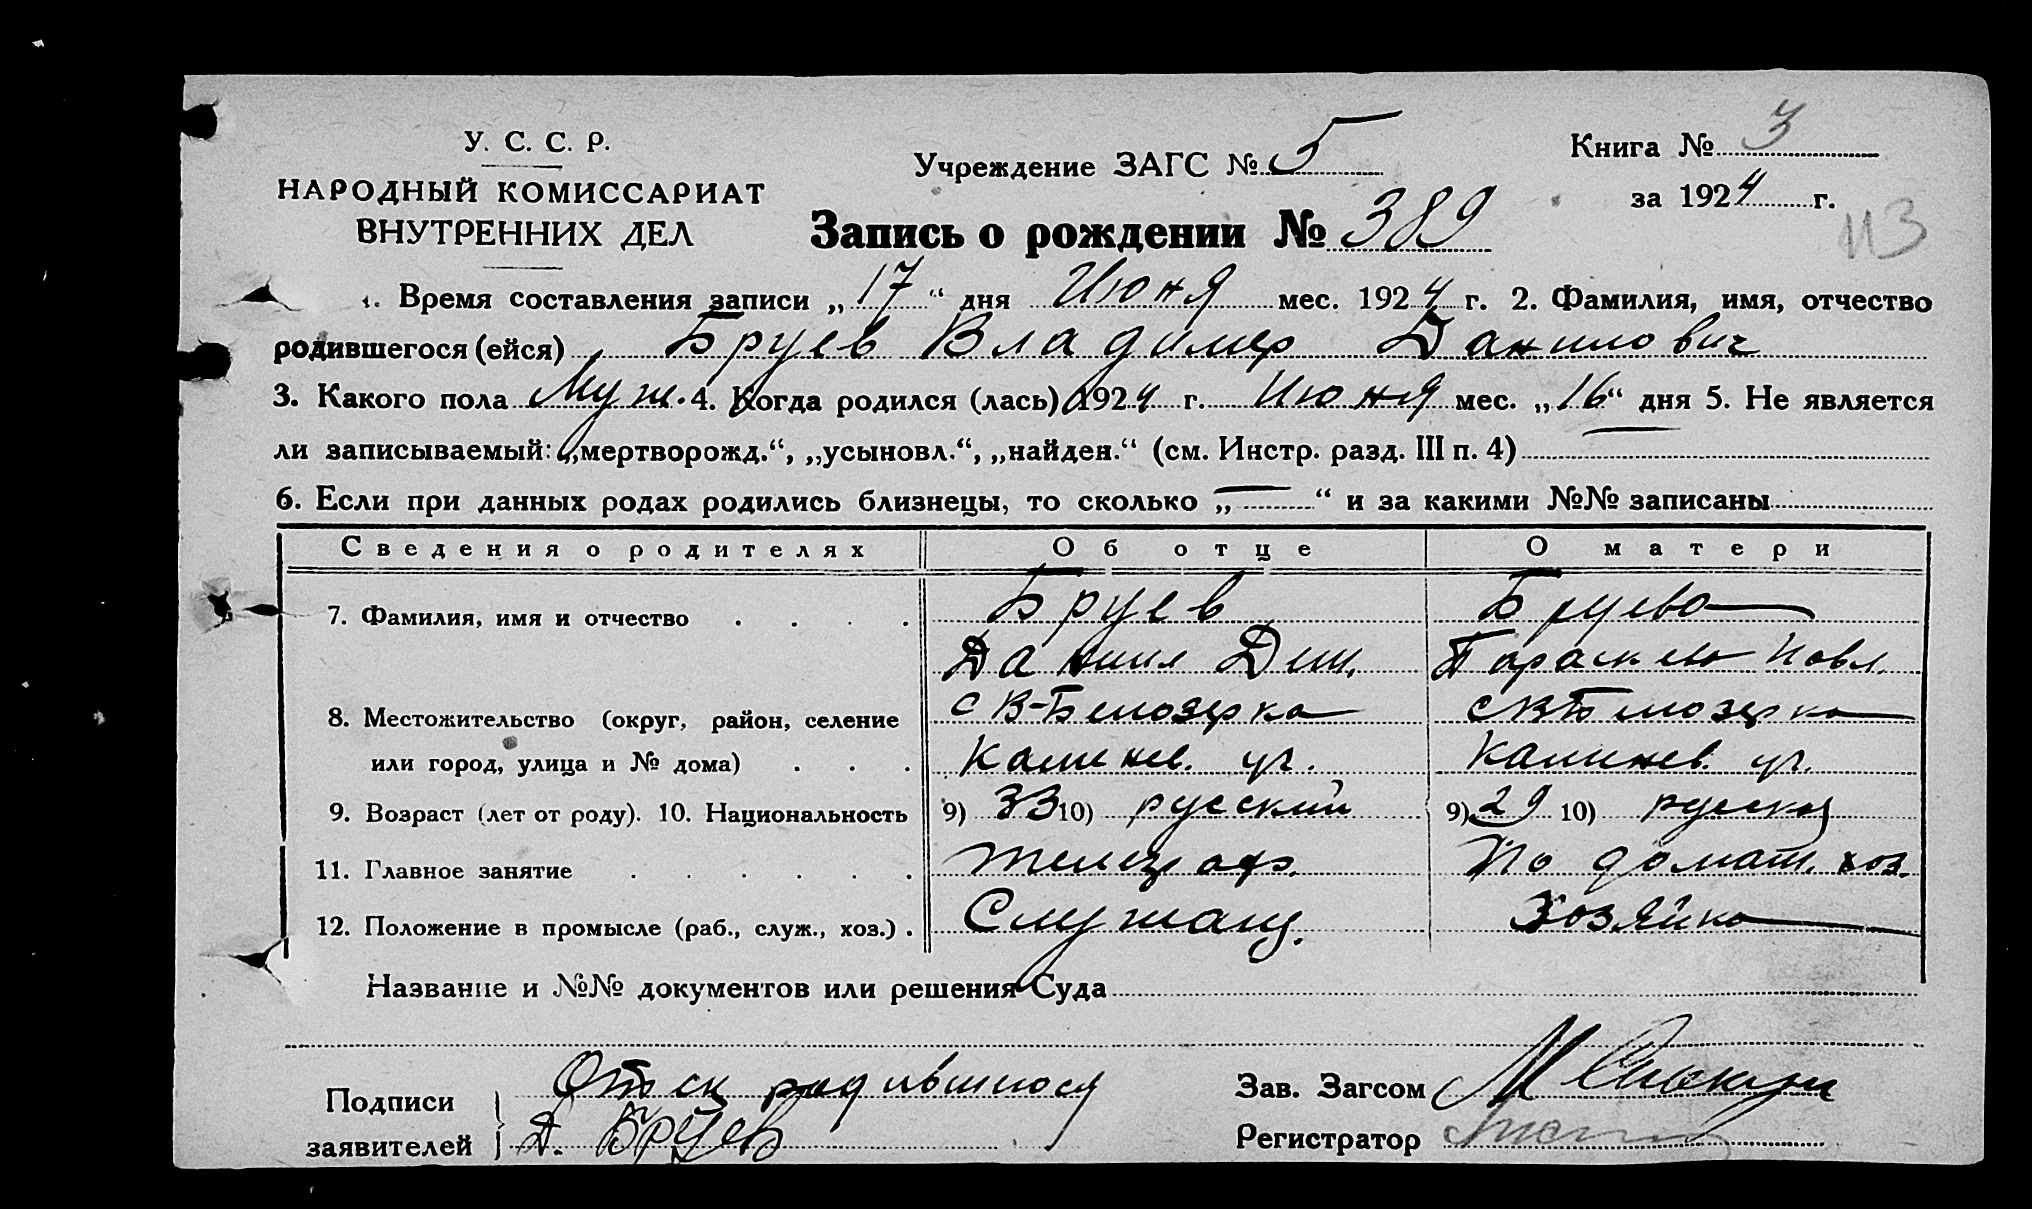 У. С. С. Р.
НАРОДНЫЙ КОМИССАРИАТ
ВНУТРЕННИХ ДЕЛ
Учреждение ЗАГС № 5
Книга № 3
за 1924 г.
113
Запись о рождении № 389
1. Время составления записи „17“ дня Июня мес. 1924 г. 2. Фамилия, имя, отчество
родившегося (ейся) Бруев Владимер Данилович
3. Какого пола Муж. 4. Когда родился (лась) 1924 г. Июня мес. „16“ дня 5. Не является
ли записываемый: „мертворожд.“, „усыновл.“, „найден.“ (см. Инстр. разд. III п. 4) —
6. Если при данных родах родились близнецы, то сколько „—“ и за какими №№ записаны
Сведения о родителях Об отце О матери
7. Фамилия, имя и отчество . . . . Бруев Бруева
Данил Дим. Параскева Павл.
8. Местожительство (округ, район, селение с В-Белозерка с В Белозерка
или город, улица и № дома) . . . Калинев. ул. Калинев. ул.
9. Возраст (лет от роду). 10. Национальность 9) 33 10) русский 9) 29 10) русская
11. Главное занятие . . . . . . телеграф. По домаш. хоз.
12. Положение в промысле (раб., служ., хоз.) . Служащ. Хозяйка
Название и №№ документов или решения Суда
Подписи
заявителей
Отец родившиося
Д. Бруев
Зав. Загсом
Регистратор